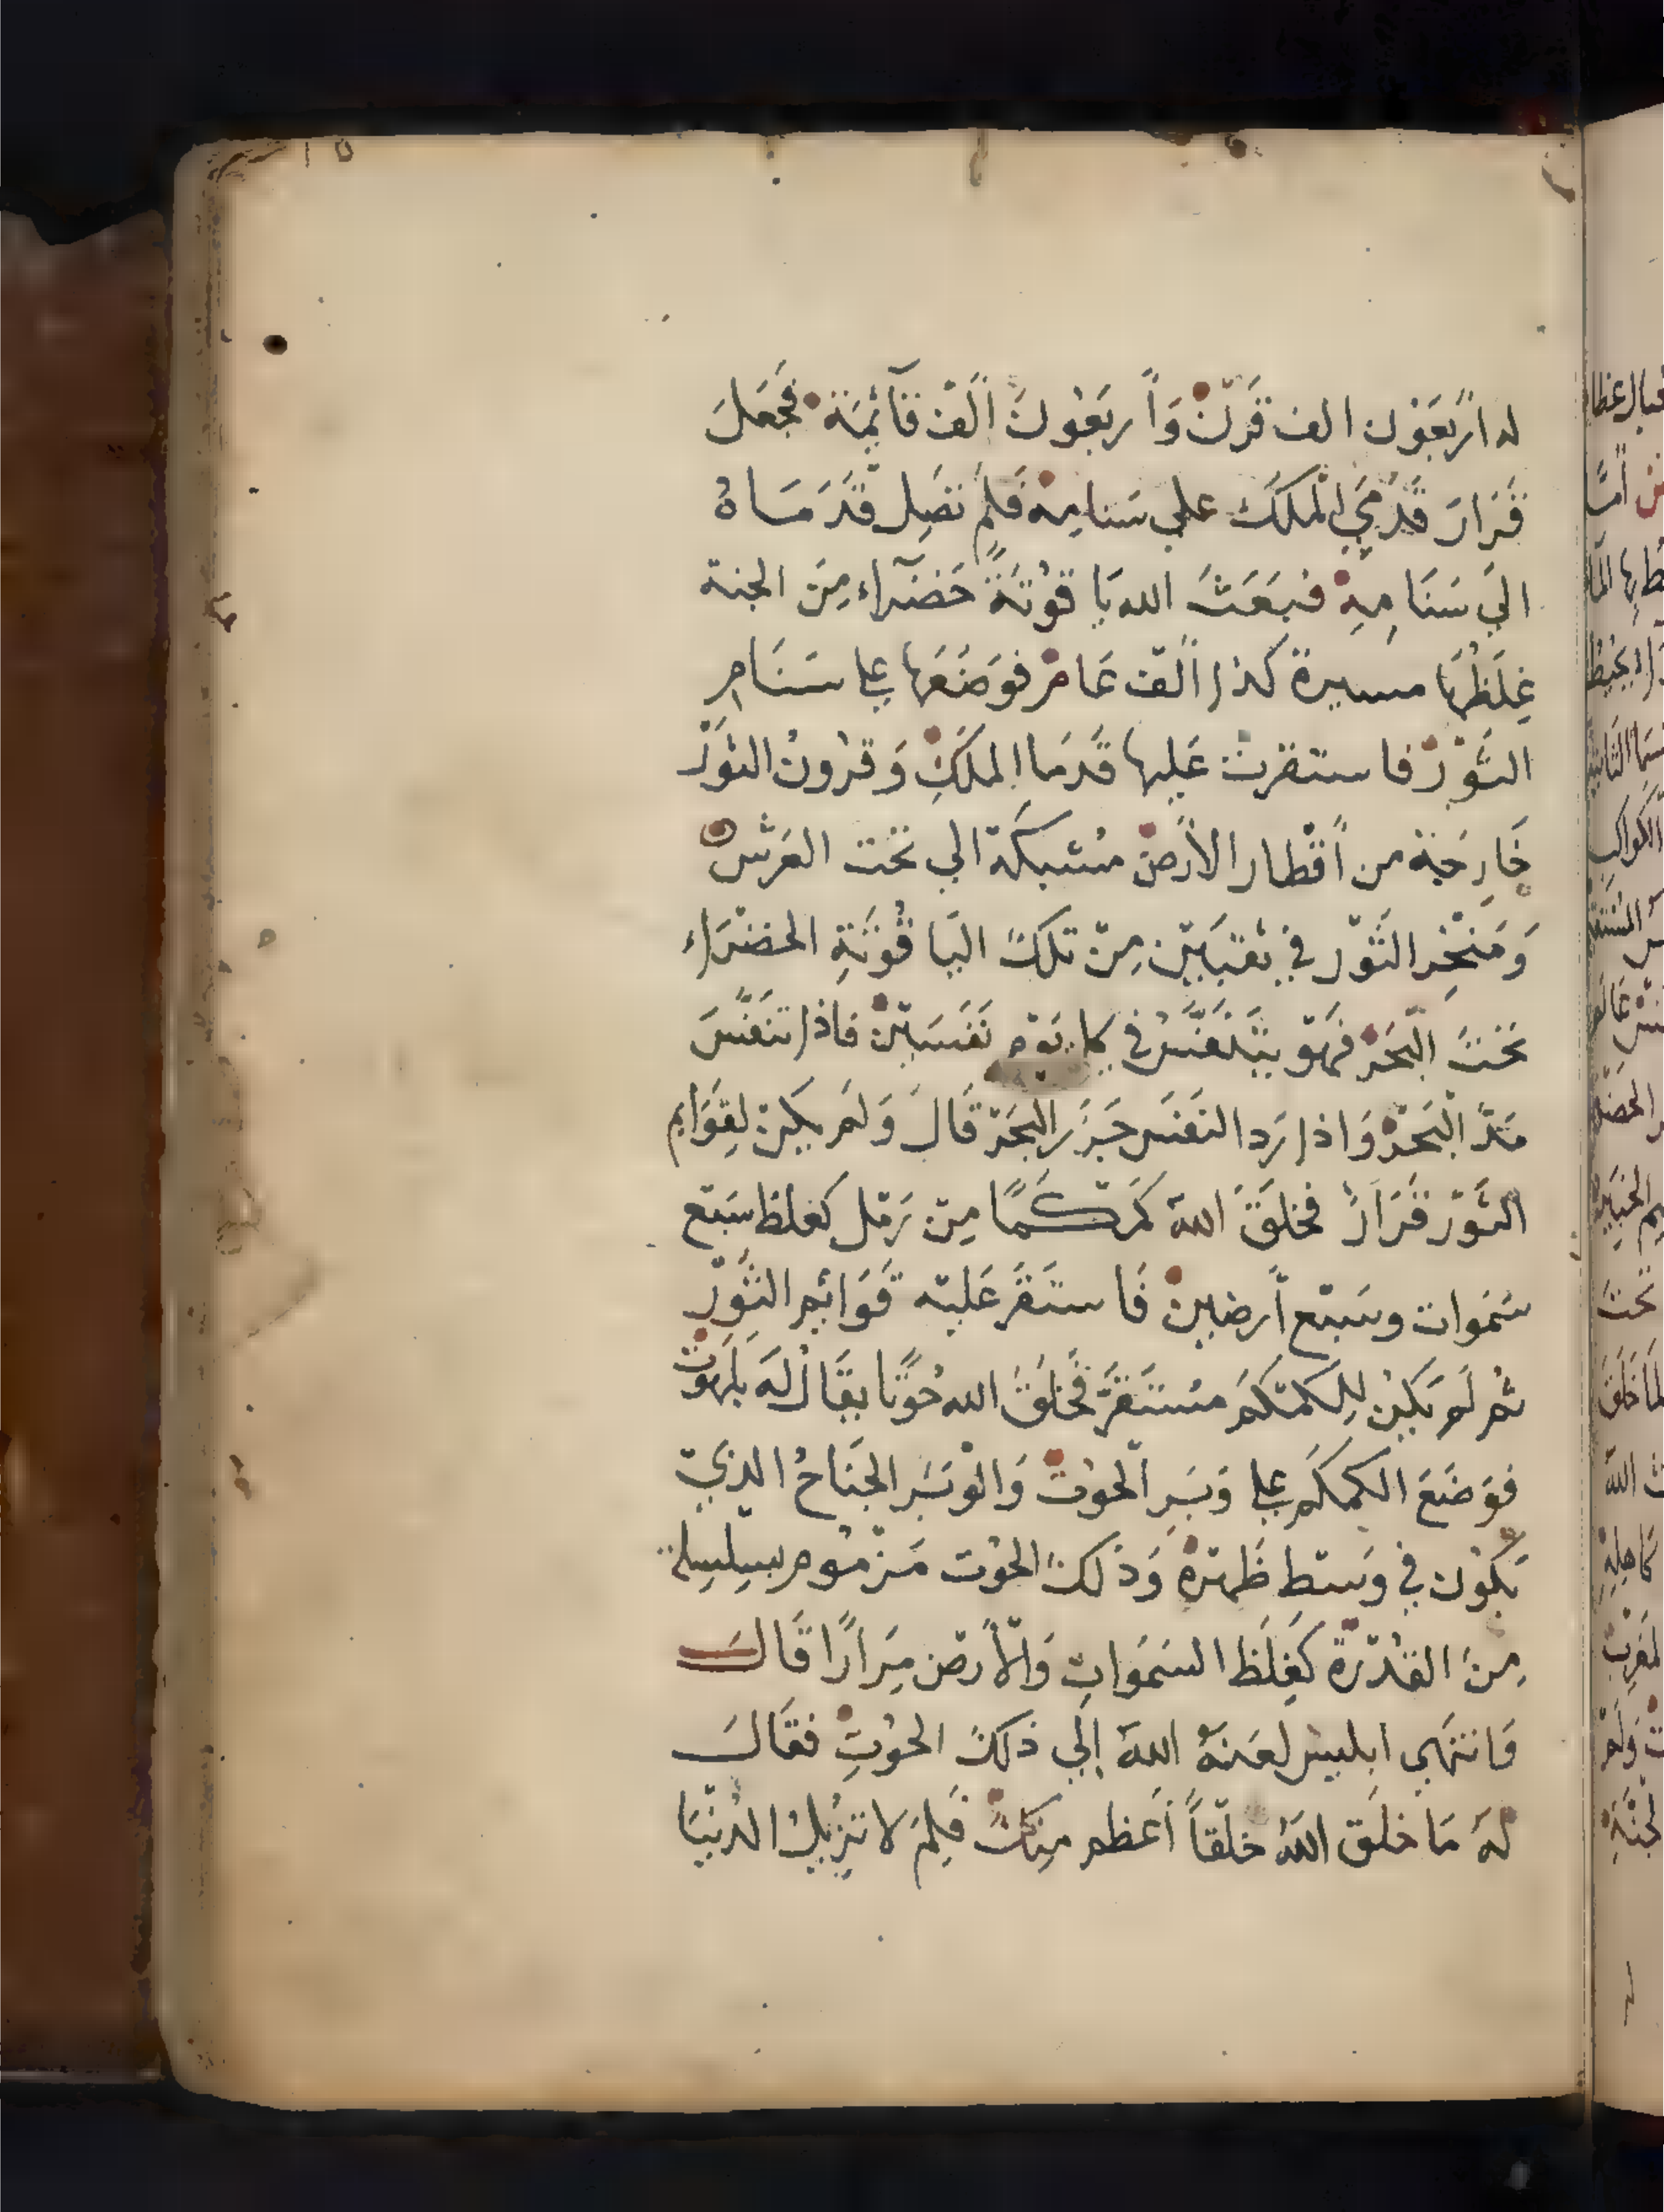 له اَربَعُون الف قَرنْ وَاَربَعُونَ اَلف قآئِمَة فجَعَلَ
قَرَارَ قَدَمَيِ الْمَلَكَ علي سَنامِهْ فَلَمْ تَصِل قَدَمَاهُ
الَي سَنَامِهِ فبَعَثَ الله يَاقوُتَةً خَضرآء مِنَ الجنة
غِلَظُهَا مسيرة كذا اَلف عَامْ فوَضَعَها على سَنَامِ
الثَوْرْ فاستقرت عَليها قَدَمَا المَلَكِ وَقرُونُ الثَوْرْ
خَارِجَة من اَقْطار الاَرض مشبكَة الي تحت العَرشْ
وَمَنْخِر الثَوْر في ثقبَين مِنْ تلكَ اليَاقُوتَةِ الخضْرَاء
تَحتَ البَحَرْ فهَوَ يَتَنَفَّسُ في كل يَوْم نَفَسَيْن فاذا تنَفَّسَ
مَدَّ الْبَحَرْ وَاذا رَد النفَس جَزَرَ البحَرْ قَالَ وَلَمَ يَكنْ لِقوَايم
الثَوْر قَرَارَْ فخلَقَ اللهَ كمَكَمًا مِنْ رَمْل كغلظ سَبع
سَمَوات وسَبْع اَرضِينْ فَاستَقَر عَليْه قَوَائِم الثَوْر
ثُم لَم يَكُنْ لِلكمْكَم مسْتَقَرَّ فخَلَقَ الله حُوتًا يقَال لَه بَلهوت
فوَضَعَ الكمكَم على وَبَرِ الْحُوتْ وَالوْبَر الجَناحُ الذيْ
يَكوُن في وَسَط ظَهْرَهْ وَذَلكَ الحُوت مَزْموُم بسِلسِلة
مِنَ القدْرَة كَغِلَظ السَمَواتِ وَالاَرضْ مِرَارًا قَالَ
فَانتهَى ابليس لعَنهُ اللهَ إلَي ذلكَ الحُوتِ فقَالَ
لهُ مَا خلَق اللهُ خلْقاً اَعظم مِنكَ فَلِمَ لا تزيلُ الدُنْيَا